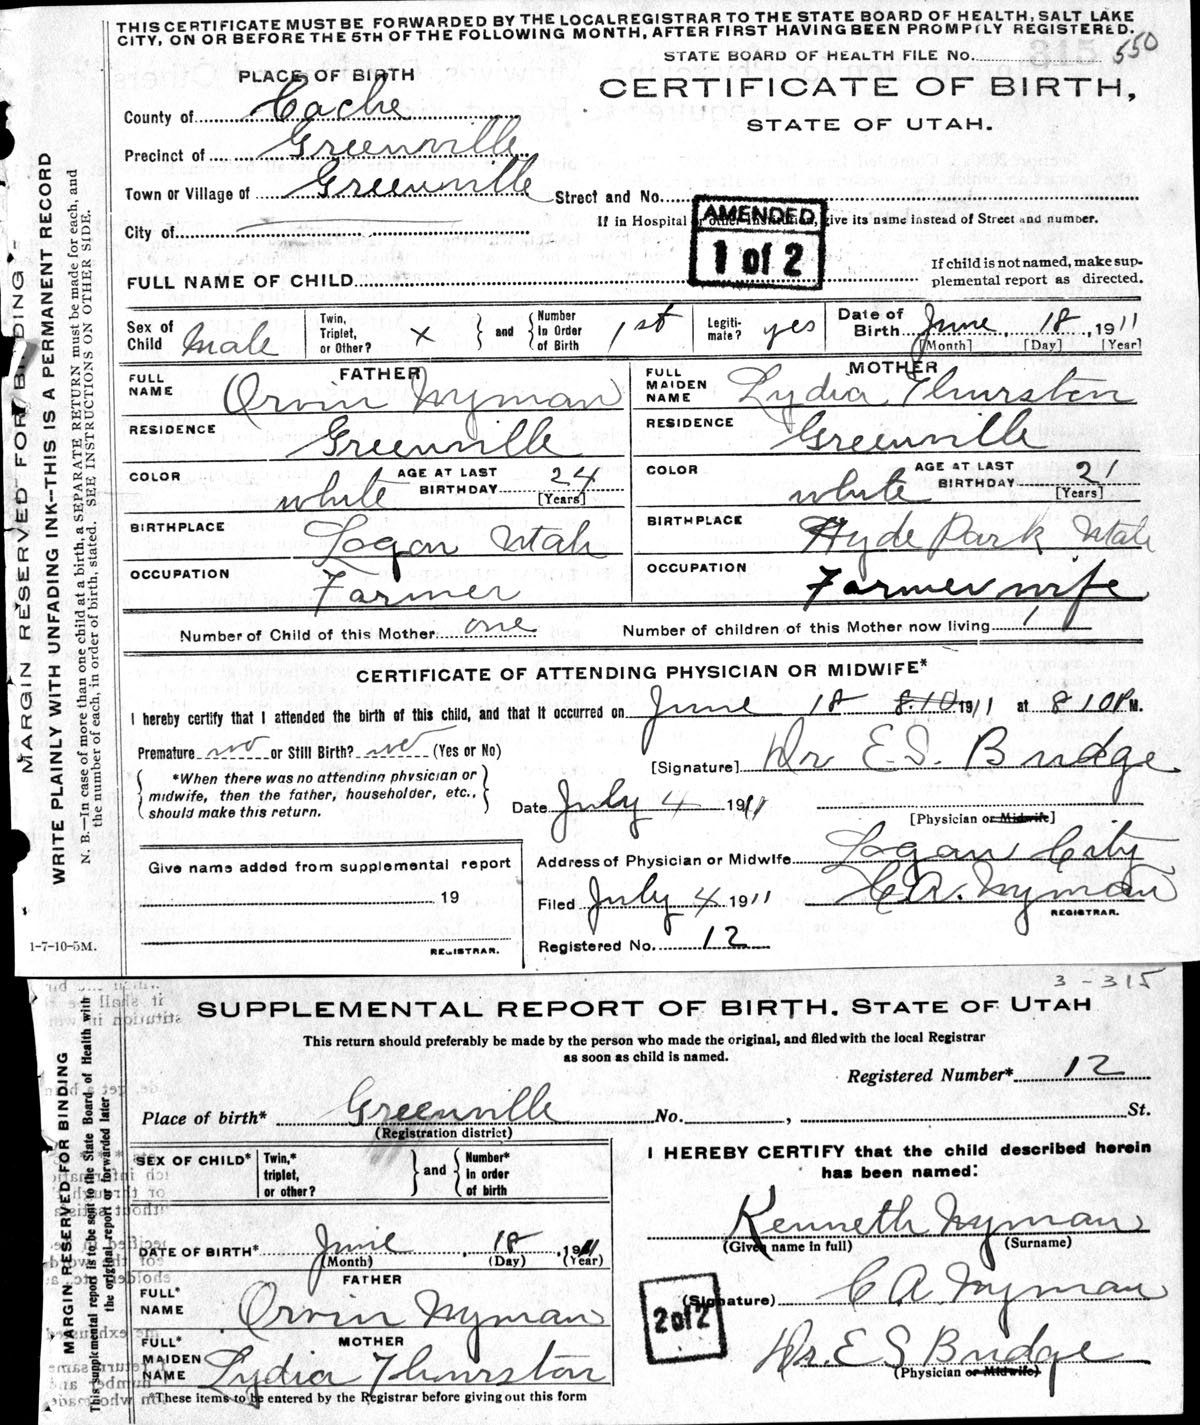 THIS CERTIFICATE MUST BE FORWARDED BY THE LOCAL REGISTRAR TO THE STATE BOARD OF HEALTH, SALT LAKE
CITY, ON OR BEFORE THE 5TH OF THE FOLLOWING MONTH, AFTER FIRST HAVING BEEN PROMPTLY REGISTERED.
STATE BOARD OF HEALTH FILE No. 550
PLACE OF BIRTH
CERTIFICATE OF BIRTH,
STATE OF UTAH.
County of Cache
Precinct of Greenville
Town or Village of Greenville Street and No.
If in Hospital or other Institution, give its name instead of Street and number.
City of
AMENDED
1 of 2
FULL NAME OF CHILD
If child is not named, make sup-
plemental report as directed.
Sex of Child Male
Twin, Triplet, or Other? X and Number in Order of Birth 1st
Legiti-mate? yes
Date of Birth June 18, 1911
[Month] [Day] [Year]
FATHER
FULL NAME Orvin Nyman
MOTHER
FULL MAIDEN NAME Lydia Thurston
RESIDENCE Greenville
RESIDENCE Greenville
COLOR white AGE AT LAST BIRTHDAY 24 [Years]
COLOR white AGE AT LAST BIRTHDAY 21 [Years]
BIRTHPLACE Logan Utah
BIRTHPLACE Hyde Park Utah
OCCUPATION Farmer
OCCUPATION Farmer wife
Number of Child of this Mother one Number of children of this Mother now living 1
CERTIFICATE OF ATTENDING PHYSICIAN OR MIDWIFE*
I hereby certify that I attended the birth of this child, and that it occurred on June 18 8.10 1911 at 8 10 P M.
Premature no or Still Birth? no (Yes or No)
[Signature] Dr E.S. Budge
*When there was no attending physician or
midwife, then the father, householder, etc.,
should make this return.
Date July 4 1911
[Physician or Midwife]
Give name added from supplemental report
19
REGISTRAR.
Address of Physician or Midwife Logan City
Filed July 4 1911 C A. Nyman
REGISTRAR.
Registered No. 12
1-7-10-5M.
MARGIN RESERVED FOR BINDING
WRITE PLAINLY WITH UNFADING INK--THIS IS A PERMANENT RECORD
N. B.—In case of more than one child at a birth, a SEPARATE RETURN must be made for each, and
the number of each, in order of birth, stated. SEE INSTRUCTIONS ON OTHER SIDE.
3-315
SUPPLEMENTAL REPORT OF BIRTH. STATE OF UTAH
This return should preferably be made by the person who made the original, and filed with the local Registrar
as soon as child is named.
Registered Number* 12
Place of birth* Greenville No. , St.
(Registration district)
SEX OF CHILD* Twin,* triplet, or other? and Number* in order of birth
I HEREBY CERTIFY that the child described herein
has been named:
Kenneth Nyman
(Given name in full) (Surname)
DATE OF BIRTH* June, 18, 1911
(Month) (Day) (Year)
FATHER
FULL* NAME Orvin Nyman
(Signature) C A. Nyman
2 of 2
MOTHER
FULL* MAIDEN NAME Lydia Thurston
Dr. E S Budge
(Physician or Midwife)
*These items to be entered by the Registrar before giving out this form
MARGIN RESERVED FOR BINDING
This supplemental report is to be sent to the State Board of Health with
the original report or forwarded later